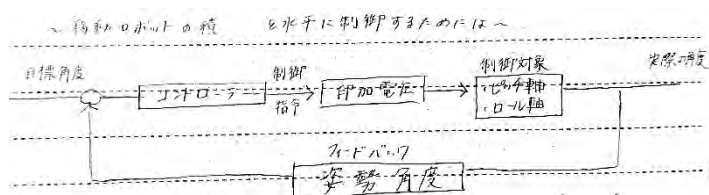 ～移動ロボットの積 を水平に制御するためには～
目標角度
コントローラー
制御
指令
印加電圧
制御対象
・ピッチ軸
・ロール軸
実際の角度
フィードバック
姿勢角度